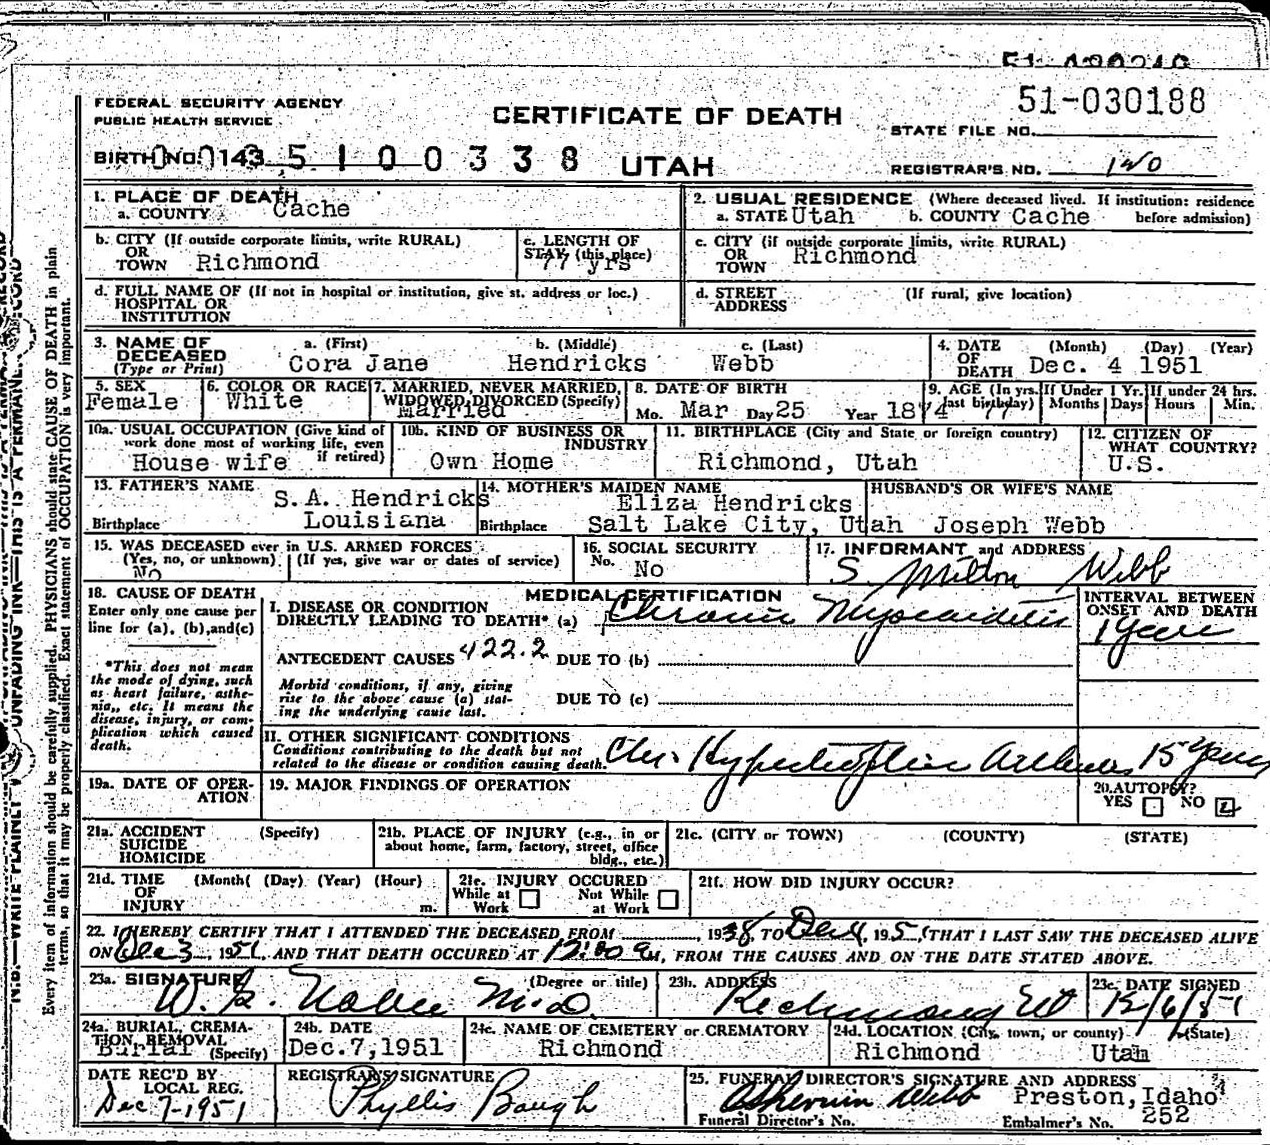 51-030188
FEDERAL SECURITY AGENCY
PUBLIC HEALTH SERVICE
CERTIFICATE OF DEATH
STATE FILE NO.
BIRTH NO. 143 5 1 0 0 3 3 8 UTAH
REGISTRAR'S NO. 120
1. PLACE OF DEATH
a. COUNTY Cache
2. USUAL RESIDENCE (Where deceased lived. If institution: residence
a. STATE Utah b. COUNTY Cache before admission)
b. CITY (If outside corporate limits, write RURAL)
OR
TOWN Richmond
c. LENGTH OF
STAY (this place)
77 yrs
c. CITY (if outside corporate limits, write RURAL)
OR
TOWN Richmond
d. FULL NAME OF (If not in hospital or institution, give st. address or loc.)
HOSPITAL OR
INSTITUTION
d. STREET (If rural, give location)
ADDRESS
3. NAME OF DECEASED
(Type or Print)
a. (First) b. (Middle) c. (Last)
Cora Jane Hendricks Webb
4. DATE OF DEATH (Month) (Day) (Year)
Dec. 4 1951
5. SEX
Female
6. COLOR OR RACE
White
7. MARRIED, NEVER MARRIED,
WIDOWED, DIVORCED (Specify)
Married
8. DATE OF BIRTH
Mo. Mar Day 25 Year 1874
9. AGE (In yrs. last birthday) 77
If Under 1 Yr. Months Days
If under 24 hrs. Hours Min.
10a. USUAL OCCUPATION (Give kind of
work done most of working life, even
if retired)
House wife
10b. KIND OF BUSINESS OR
INDUSTRY
Own Home
11. BIRTHPLACE (City and State or foreign country)
Richmond, Utah
12. CITIZEN OF
WHAT COUNTRY?
U.S.
13. FATHER'S NAME
S.A. Hendricks
Birthplace Louisiana
14. MOTHER'S MAIDEN NAME
Eliza Hendricks
Birthplace Salt Lake City, Utah
HUSBAND'S OR WIFE'S NAME
Joseph Webb
15. WAS DECEASED ever in U.S. ARMED FORCES
(Yes, no, or unknown) (If yes, give war or dates of service)
No
16. SOCIAL SECURITY
No. No
17. INFORMANT and ADDRESS
S. Milton Webb
18. CAUSE OF DEATH
Enter only one cause per
line for (a), (b), and (c)
*This does not mean
the mode of dying, such
as heart failure, asthe-
nia,, etc. It means the
disease, injury, or com-
plication which caused
death.
MEDICAL CERTIFICATION
I. DISEASE OR CONDITION
DIRECTLY LEADING TO DEATH* (a) Chronic Myocarditis
INTERVAL BETWEEN
ONSET AND DEATH
1 Year
ANTECEDENT CAUSES 422.2 DUE TO (b)
Morbid conditions, if any, giving
rise to the above cause (a) stat-
ing the underlying cause last.
DUE TO (c)
II. OTHER SIGNIFICANT CONDITIONS
Conditions contributing to the death but not
related to the disease or condition causing death.
Chr. Hypertrophic 15 Years
19a. DATE OF OPER-
ATION
19. MAJOR FINDINGS OF OPERATION
20. AUTOPSY?
YES NO
21a. ACCIDENT (Specify)
SUICIDE
HOMICIDE
21b. PLACE OF INJURY (e.g., in or
about home, farm, factory, street, office
bldg., etc.)
21c. (CITY or TOWN) (COUNTY) (STATE)
21d. TIME (Month( (Day) (Year) (Hour)
OF
INJURY m.
21e. INJURY OCCURED
While at Work Not While at Work
21f. HOW DID INJURY OCCUR?
22. I HEREBY CERTIFY THAT I ATTENDED THE DECEASED FROM 1938, TO Dec 4, 195 , (THAT I LAST SAW THE DECEASED ALIVE
ON Dec 3, 1951, AND THAT DEATH OCCURED AT 12:00 a M, FROM THE CAUSES AND ON THE DATE STATED ABOVE.
23a. SIGNATURE (Degree or title)
M.D.
23b. ADDRESS
Richmond Ut
23c. DATE SIGNED
12/6/51
24a. BURIAL, CREMA-
TION, REMOVAL
Burial (Specify)
24b. DATE
Dec.7,1951
24c. NAME OF CEMETERY or CREMATORY
Richmond
24d. LOCATION (City, town, or county) (State)
Richmond Utah
DATE REC'D BY
LOCAL REG.
Dec 7-1951
REGISTRAR'S SIGNATURE
Phyllis Baugh
25. FUNERAL DIRECTOR'S SIGNATURE AND ADDRESS
Webb Preston, Idaho
Funeral Director's No. Embalmer's No. 252
N.B.—WRITE PLAINLY UNFADING INK—THIS IS A PERMANENT RECORD
Every item of information should be carefully supplied. PHYSICIANS should state CAUSE OF DEATH in plain
terms, so that it may be properly classified. Exact statement of OCCUPATION is very important.